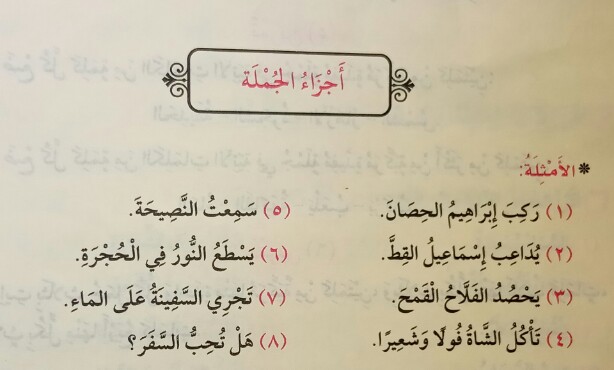 أَجْزَاءُ الجُمْلَة
* الأَمْثِلَةُ:
(١) رَكِبَ إِبْرَاهِيمُ الحِصَانَ.
(٢) يُدَاعِبُ إِسْمَاعِيلُ القِطَّ.
(٣) يَحْصُدُ الفَلَّاحُ الْقَمْحَ.
(٤) تَأْكُلُ الشَّاةُ فُولًا وَشَعِيرًا.
(٥) سَمِعْتُ النَّصِيحَةَ.
(٦) يَسْطَعُ النُّورُ فِي الْحُجْرَةِ.
(٧) تَجْرِي السَّفِينَةُ عَلَى المَاءِ.
(٨) هَلْ تُحِبُّ السَّفَرَ؟